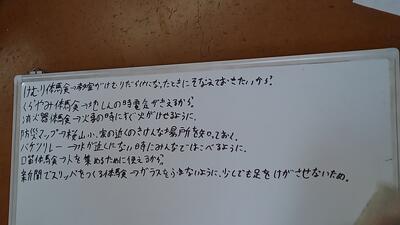 けむり体験→教室がけむりだらけになったときにそなえておきたいから?
くらやみ体験→地しんの時電気がきえるから?
消火器体験→火事の時にすぐ火がけせるように。
防災マップ→桜山小、家の近くのきけんな場所を知っておく。
バケツリレー→水が近くにない時にみんなではこべるように。
口笛体験→人を集めるために使えるから?
新聞でスリッパをつくる体験→ガラスをふまないように、少しでも足をけがさせないため。